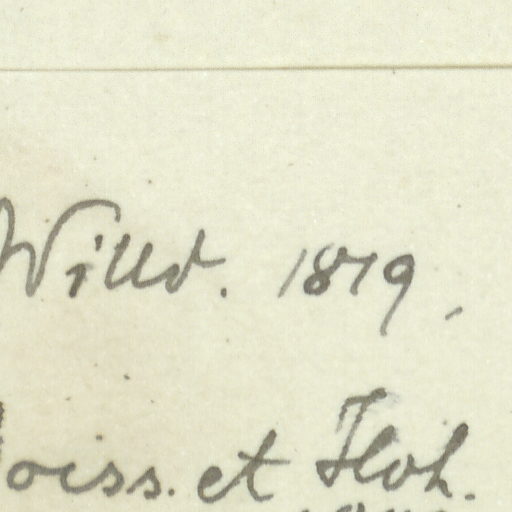 Willd. 1819,
oiss. et Hoh.